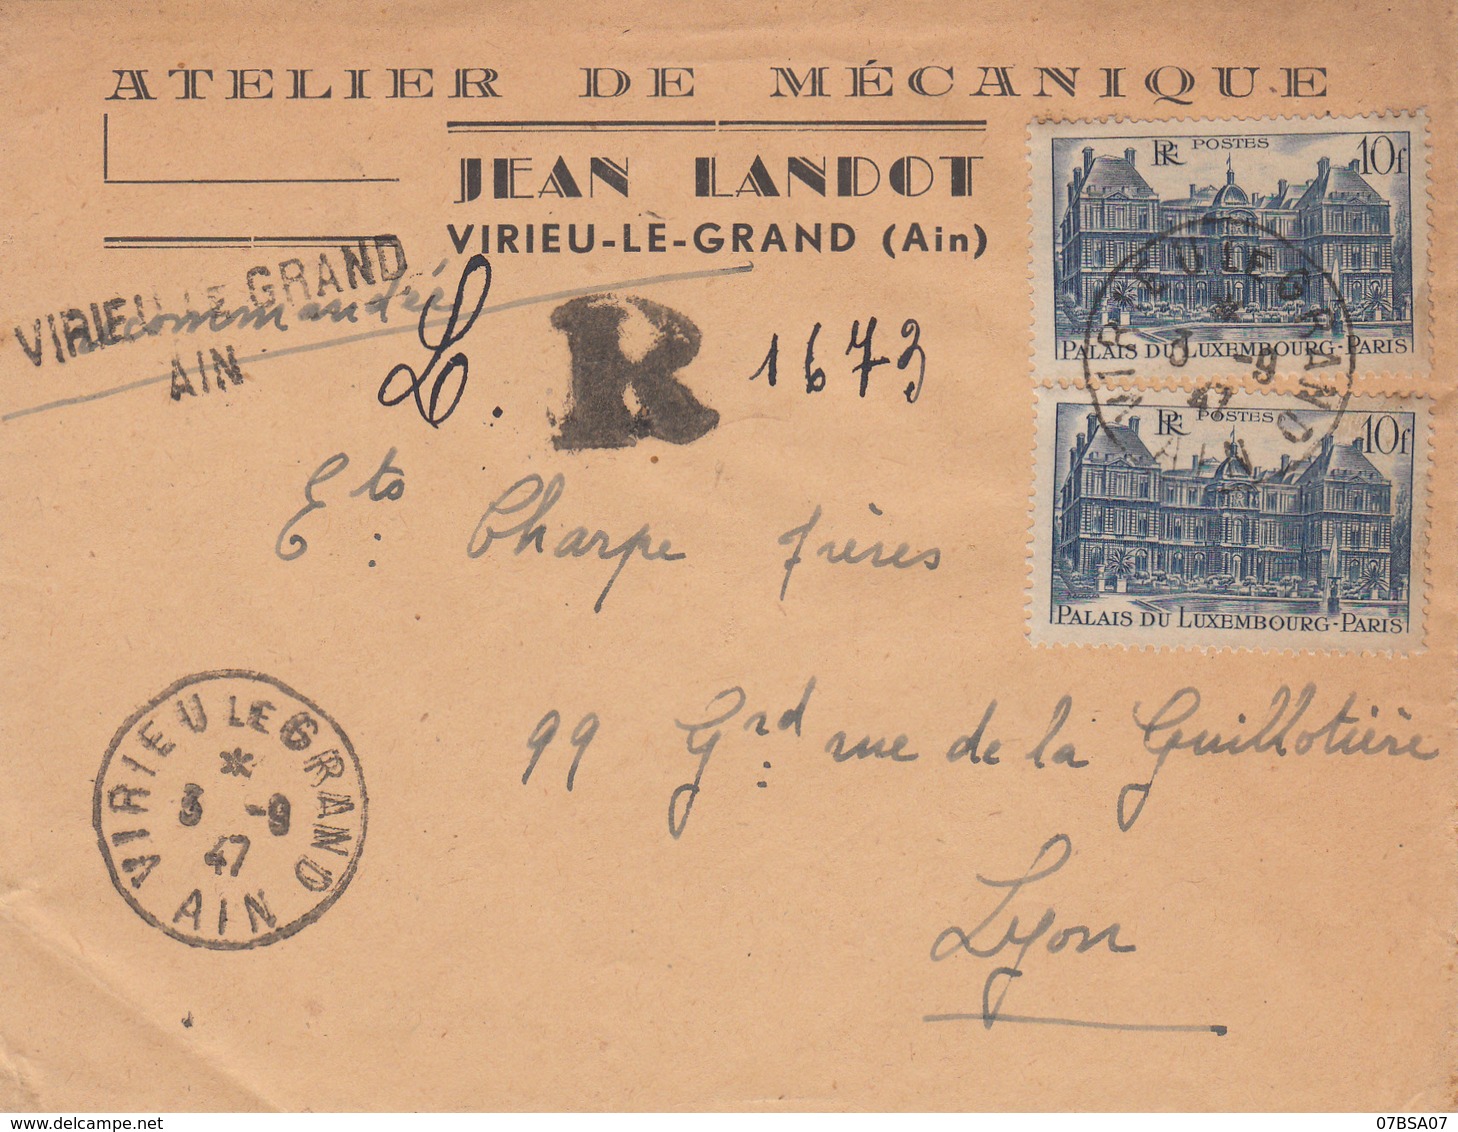 ATELIER DE MÉCANIQUE
JEAN LANDOT
VIRIEU-LÈ-GRAND (Ain)
VIRIEU-LE-GRAND
AIN
Recommandée
L. R 1673
RF POSTES 10f
PALAIS DU LUXEMBOURG-PARIS
RF POSTES 10f
PALAIS DU LUXEMBOURG-PARIS
VIRIEU LE GRAND
3 -9
47
AIN
Ets Charpe frères
99 Grd rue de la Guillotière
Lyon
VIRIEU LE GRAND
3 -9
47
AIN
07BSA07